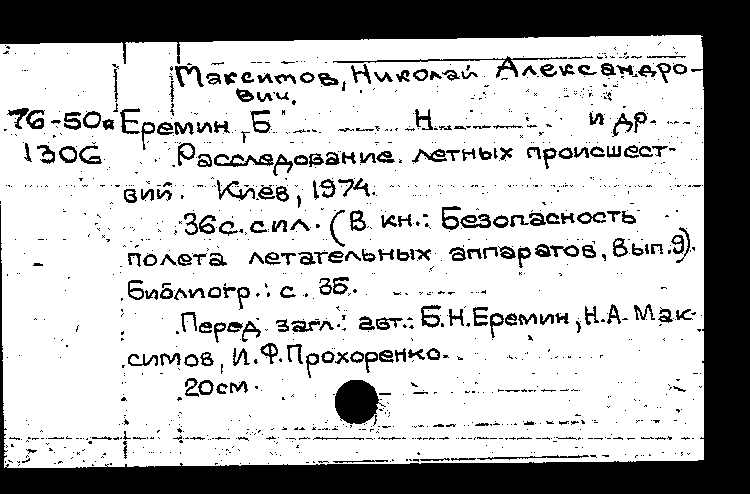 Максимов, Николай Александро-
вич.
76-50а Еремин, Б Н и др.
1306 Расследование летных происшест-
вий. Киев, 1974.
36 с. с ил. (В кн.: Безопасность
полета летательных аппаратов, вып. 9).
Библиогр.: с. 35.
Перед загл.: авт.: Б.Н. Еремин, Н.А. Мак-
симов, И.Ф. Прохоренко.
20 см.